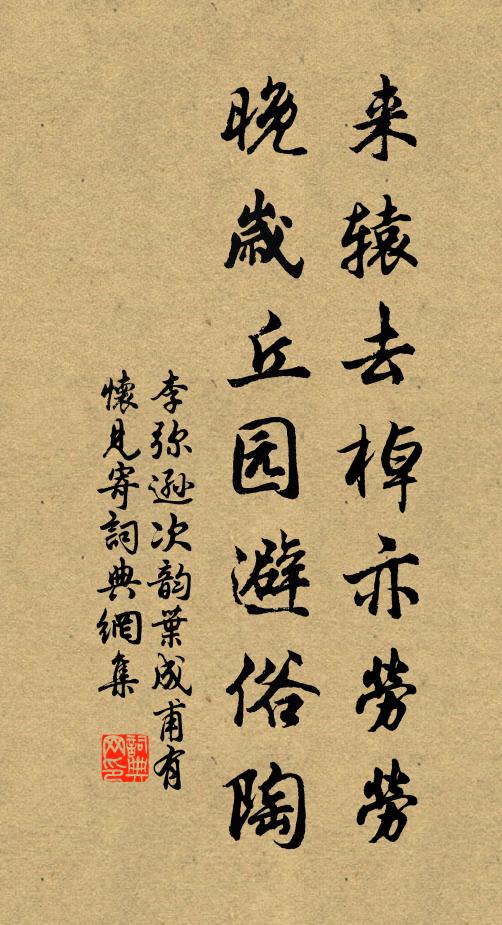 来辕去棹亦劳劳
晚岁丘园避俗陶
李弥逊次韵葉成甫有
懷見寄詞典網集
詞典网印